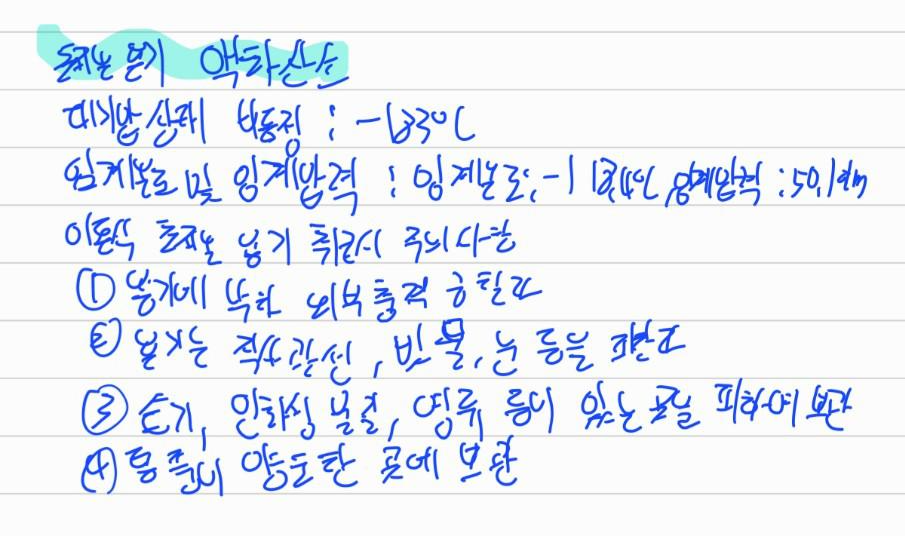 초저온 용기 액화산소
대기압 상태 비등점 : -183℃
임계온도 및 임계압력 : 임계온도: -118.4℃, 임계압력 : 50.1atm
이동식 초저온 용기 취급시 주의사항
① 용기에 낙하 외부충격 금한다
② 용기는 직사광선, 빗물, 눈 등을 피한다
③ 습기, 인화성 물질, 염류 등이 있는 곳을 피하여 보관
④ 통풍이 양호한 곳에 보관